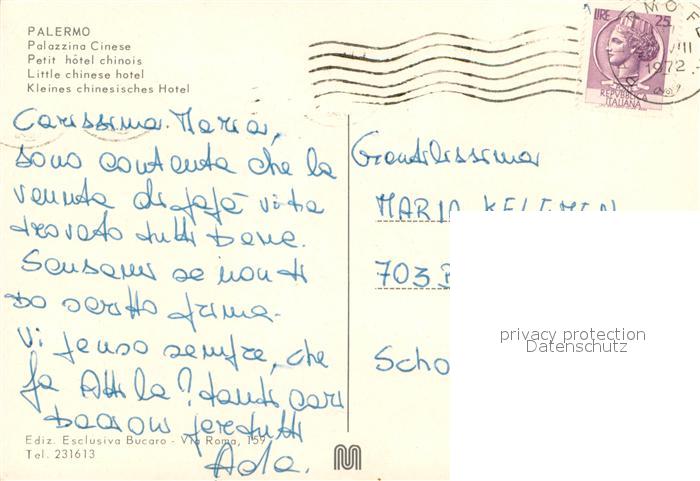 PALERMO
Palazzina Cinese
Petit hôtel chinois
Little chinese hotel
Kleines chinesisches Hotel
LIRE 25
REPVBBLICA
ITALIANA
VIII
1972
Carissima Maria,
sono contenta che la
venuta di papà vi ha
trovato tutti bene.
Scusami se non ti
ho scritto prima.
Vi penso sempre, che
fa Attila? tanti cari
bacioni per tutti
Ada.
Gentilissima
MARIA
703
Scho
privacy protection
Datenschutz
Ediz. Esclusiva Bucaro - Via Roma, 159
Tel. 231613